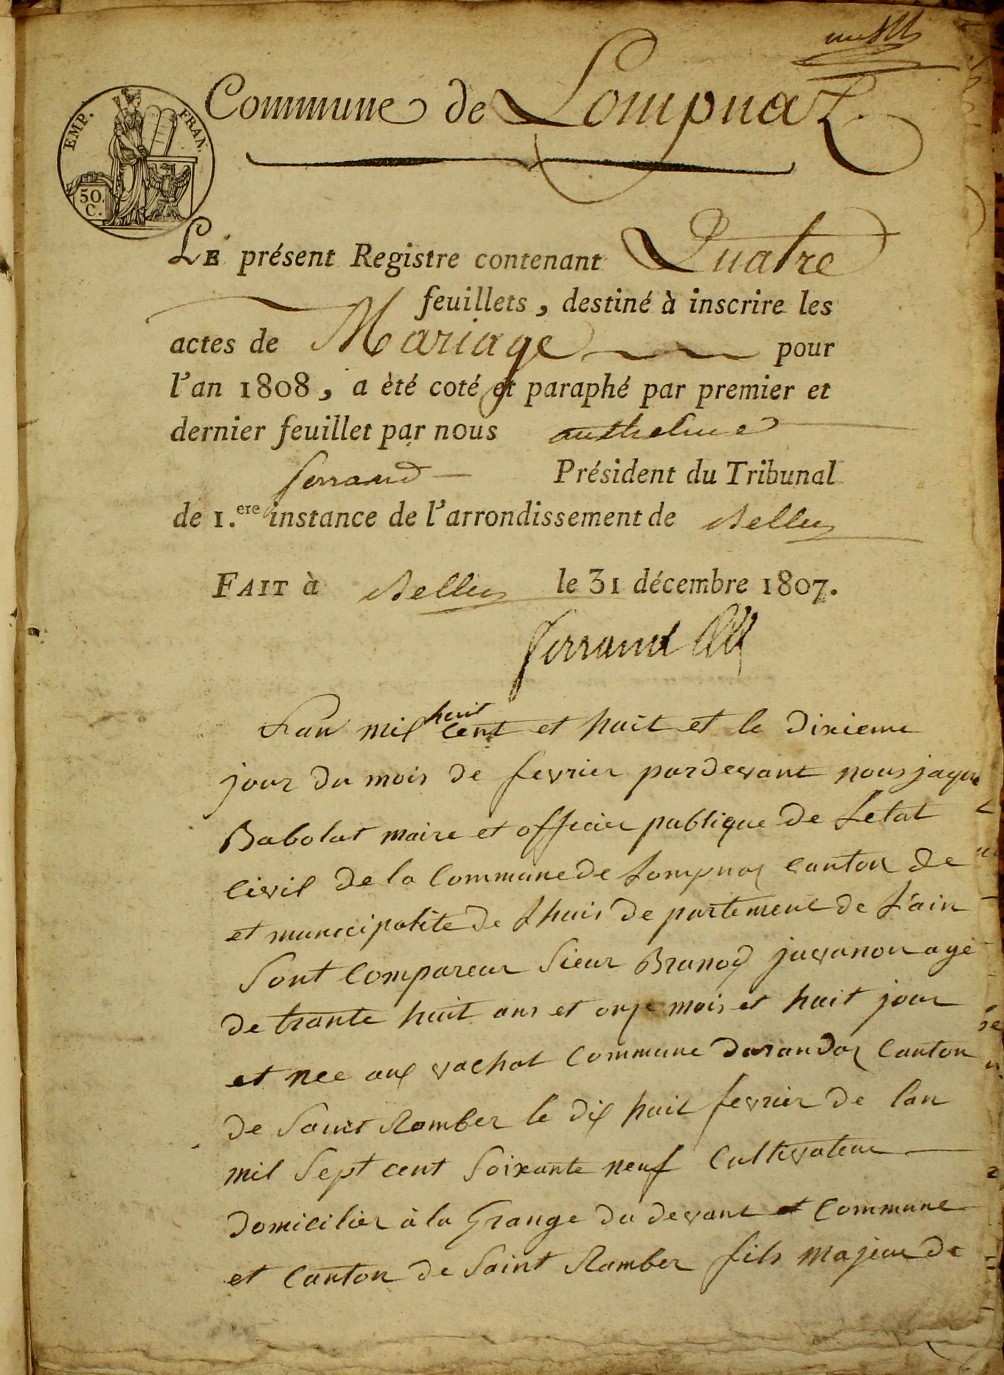 Commune de Lompnaz.
EMP. FRAN.
50. C.
LE présent Registre contenant Quatre
feuillets, destiné à inscrire les
actes de Mariage pour
l'an 1808, a èté coté et paraphé par premier et
dernier feuillet par nous anthelme
ferrand Président du Tribunal
de 1.ere instance de l'arrondissement de Belley
FAIT à Belley le 31 décembre 1807.
ferrand
Lan mil huit cent et huit et le dixieme
jour du mois de fevrier pardevant nous jaque
Babolat maire et officier publique de Letat
civil de la Commune de Lompnaz canton de
et municipalite de Lhuis departement de L'ain
Sont Compareur Sieur Brand javanon agé
de trante huit ans et onze mois et huit jour
et nee aux vachat Commune darandas Canton
de Saint Romber le dix huit fevrier de lan
mil Sept cent Soixante neuf Cultivateur
domicilier à la Grange du devant et Commune
et Canton de Saint Romber fils majeur de